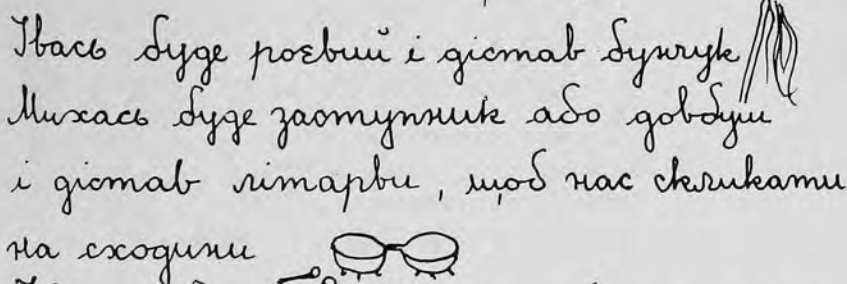 Івась буде роєвий і дістав бунчук
Михась буде заступник або довбуш
і дістав літарви, щоб нас скликати
на сходини